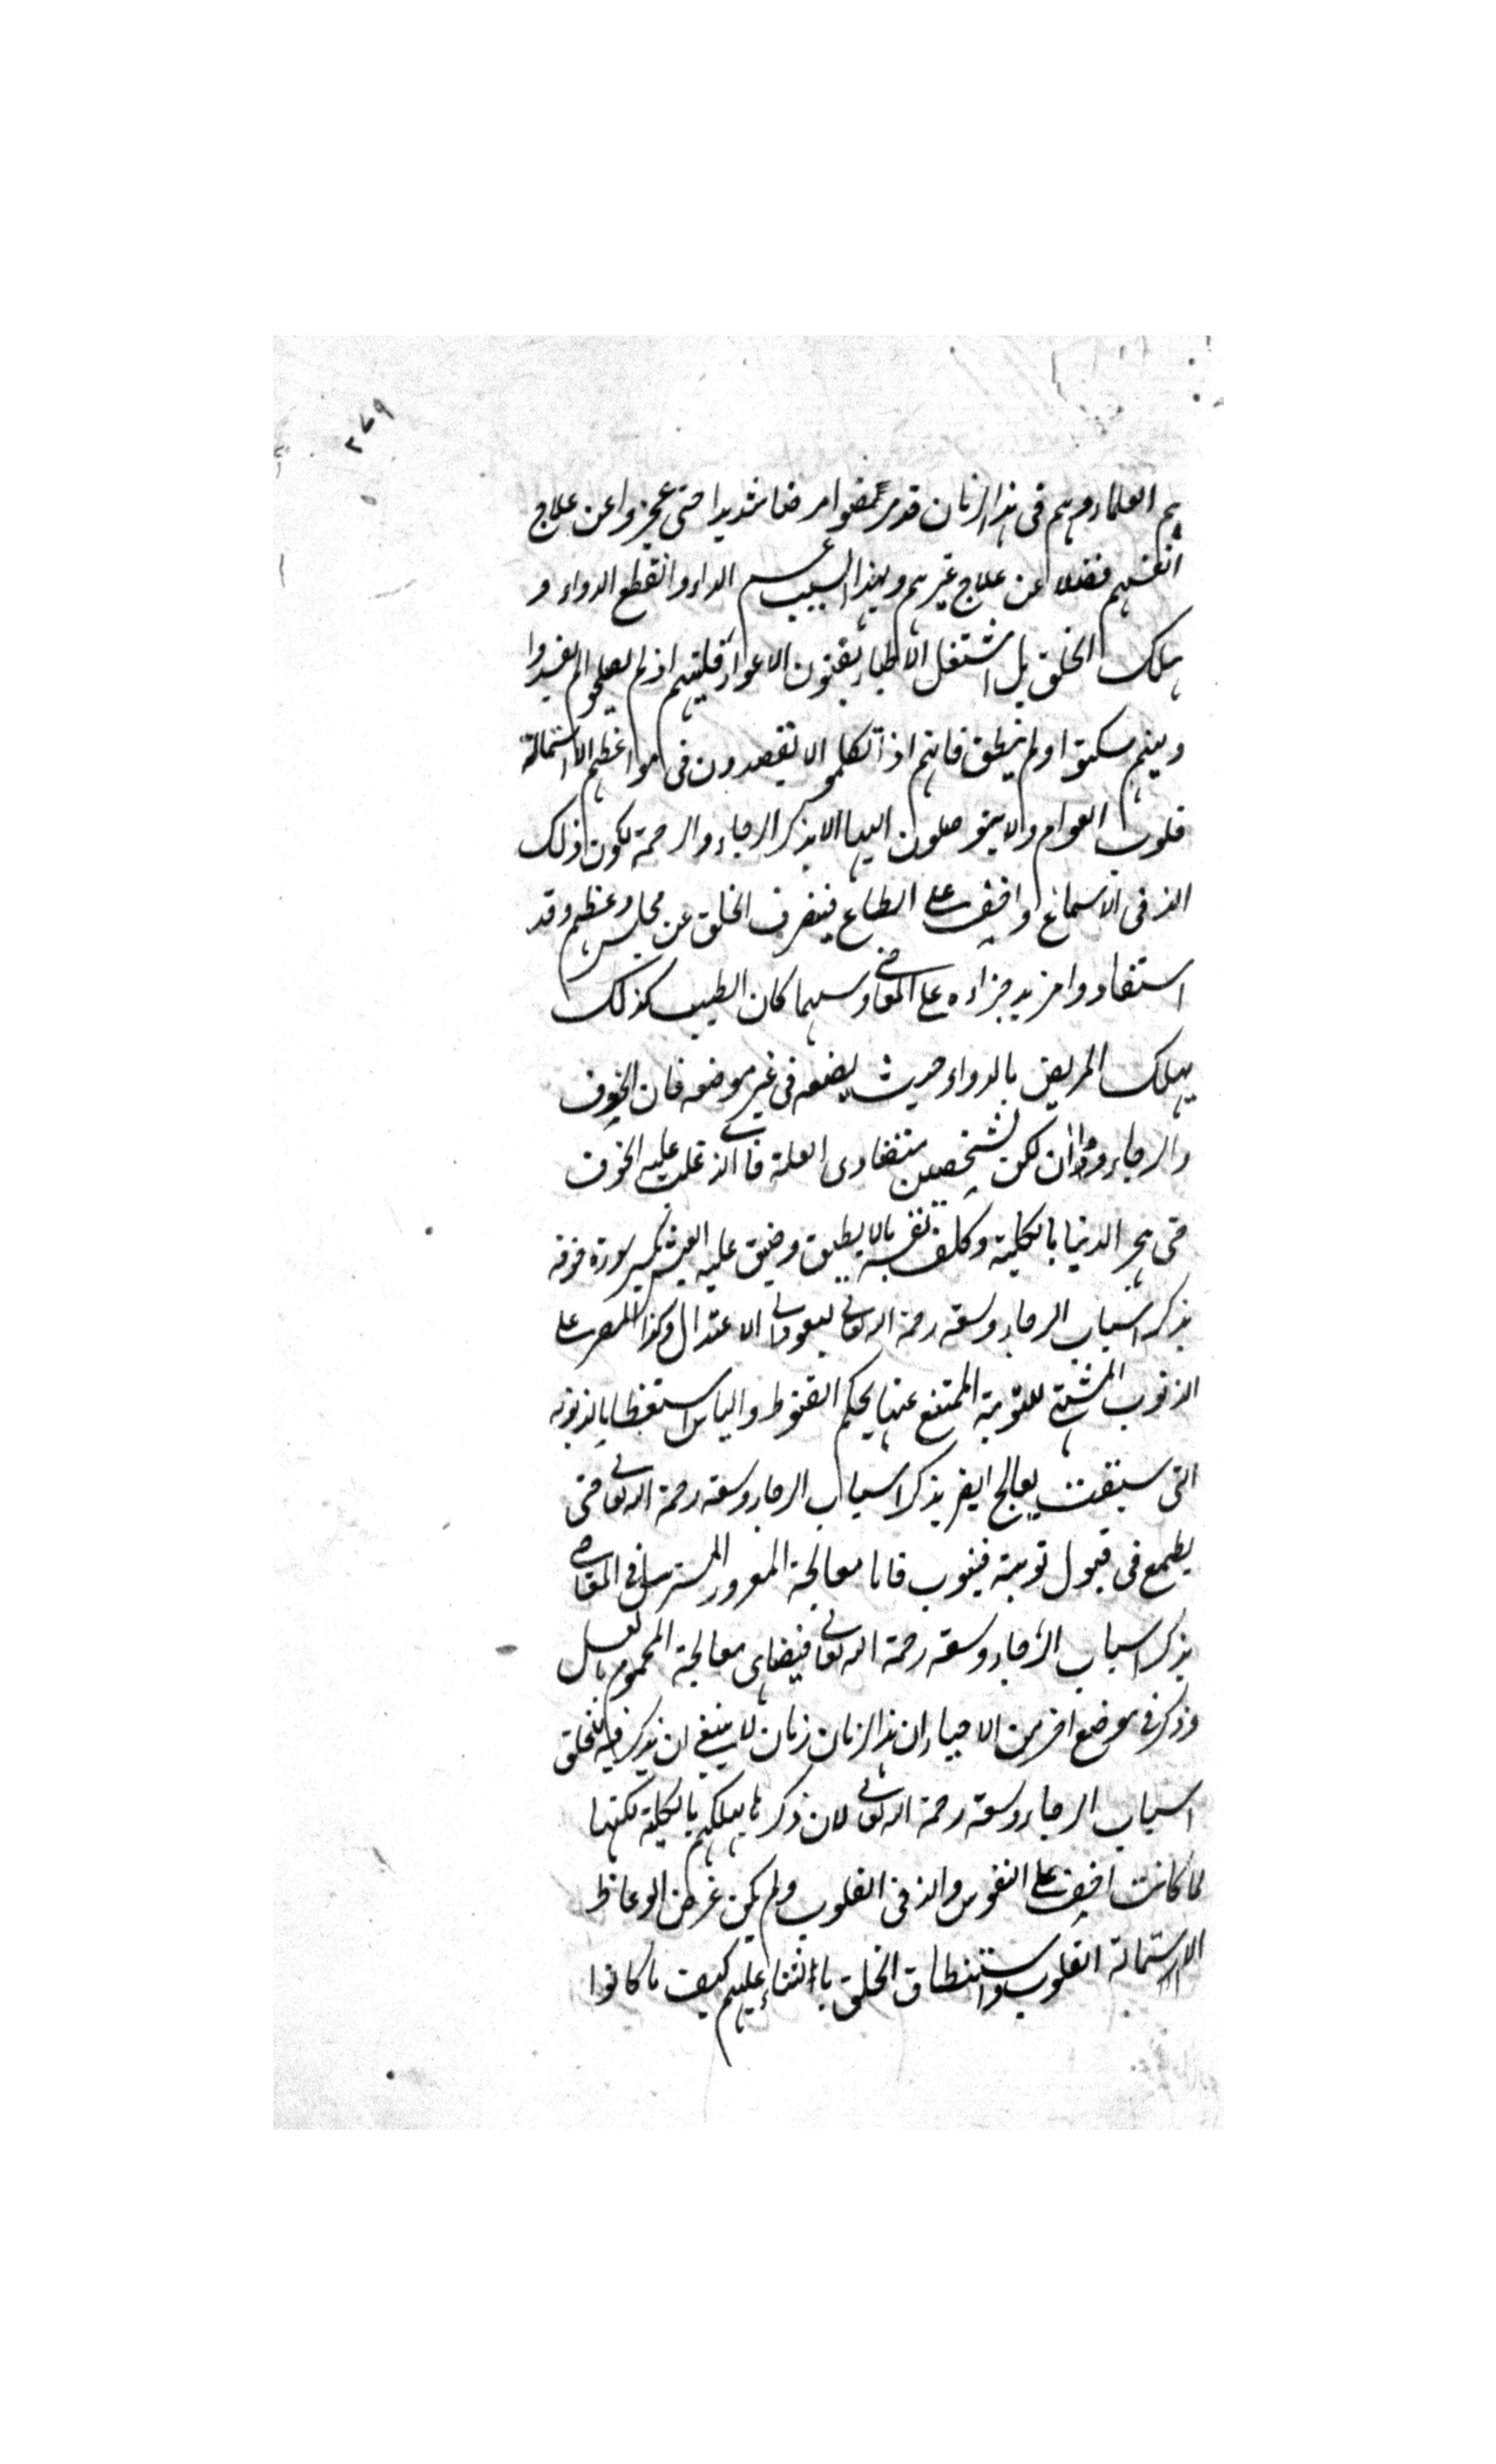 ٢٦٩
هم العلماء وهم فى هذا الزمان قد مرضوا مرضا شديدا حتى عجزوا عن علاج
انفسهم فضلا عن علاج غيرهم ولهذا السبب عم الداء وانقطع الدواء و
هلك الخلق بل اشتغل الاطباء بفنون الاغواء فليتهم اذ لم يصلحوا لم يفسدوا
وليتهم سكتوا ولم ينطقوا فانهم اذا تكلموا لا يقصدون فى مواعظهم الا استمالة
قلوب العوام ولا يتوصلون اليها الا بذكر الرجاء والرحمة لكون ذلك
الذ فى الاسماع واخف على الطباع فينصرف الخلق عن مجلس وعظهم وقد
استفادوا مزيد جراءه على المعاصى ومهما كان الطبيب كذلك
يهلك المريض بالدواء حيث يضعه فى غير موضعه فان الخوف
والرجاء دواان لكن لشخصين متضادى العلة فاالذى غلب عليه الخوف
حتى هجر الدنيا بالكلية وكلف نفسه مالا يطيق وضيق عليه العيش يكسر سورة خوفه
بذكر اسباب الرجاء وسعة رحمة الله تعالى ليعود الى الاعتدال وكذا المصر على
الذنوب المشتهى للتوبة الممتنع عنها بحكم القنوط والياس استعظاما لذنوبه
التى سبقت يعالج ايضا بذكر اسباب الرجاء وسعة رحمة الله تعالى حتى
يطمع فى قبول توبته فيتوب فاما معالجة المغرور المسترسل فى المعاصى
بذكر اسباب الرجاء وسعة رحمة الله تعالى فيضاهى معالجة المحموم بالعسل
وذكر فى موضع اخر من الاحياء ان هذا الزمان زمان لا ينبغى ان يذكر فيه للخلق
اسباب الرجاء وسعة رحمة الله تعالى لان ذكرها يهلكهم بالكلية لكنها
لما كانت اخف على النفوس والذ فى القلوب ولم يكن غرض الوعاظ
الا استمالة القلوب واستنطاق الخلق باالثناء عليهم كيف ما كانوا